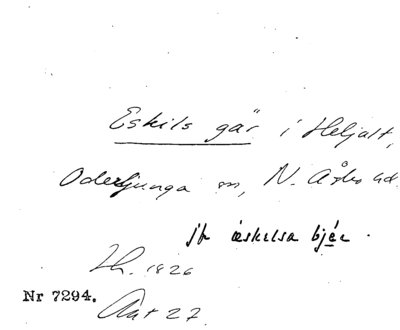 Eskils gär i Heljalt,
Oderljunga sn, N. Åsbo hd.
jfr æskilsa bjér.
Lh. 1826
Nr 7294.
Aat 27